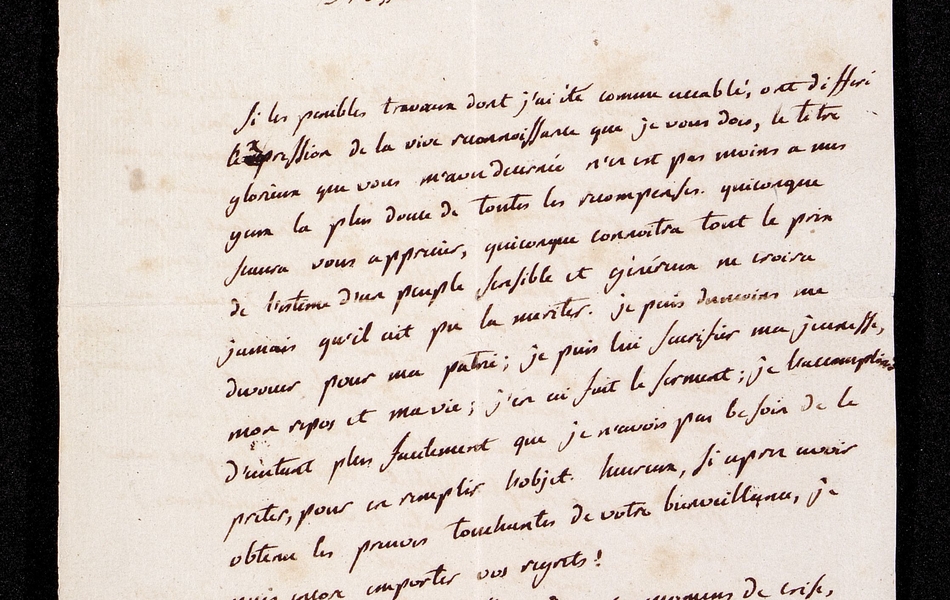 Si les penibles travaux dont j'ai été comme accablé, ont differé
l'expression de la vive reconnoissance que je vous dois, le titre
glorieux que vous m'avez decerné n'en est pas moins a mes
yeux la plus douce de toutes les recompenses. quiconque
scaura vous apprecier, quiconque connoitra tout le prix
de l'estime d'un peuple sensible et généreux ne croira
jamais qu'il ait pu la meriter. je puis dumoins me
devouer pour ma patrie; je puis lui sacrifier ma jeunesse,
mon repos et ma vie; j'en ai fait le serment; je l'accomplirai
d'autant plus facilement que je n'avois pas besoin de le
preter, pour en remplir l'objet. heureux, si apres avoir
obtenu les preuves touchantes de votre bienveillance, je
puis encore emporter vos regrets!
de crise,